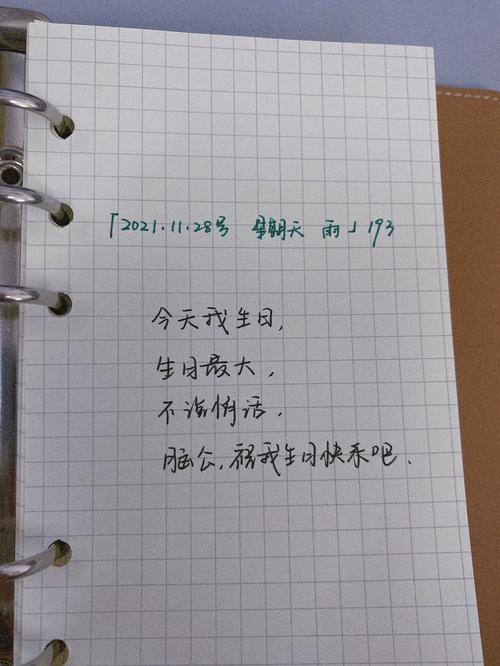 「2021.11.28号 星期天 雨」193
今天我生日,
生日最大,
不说悄话.
脑公,祝我生日快乐吧.